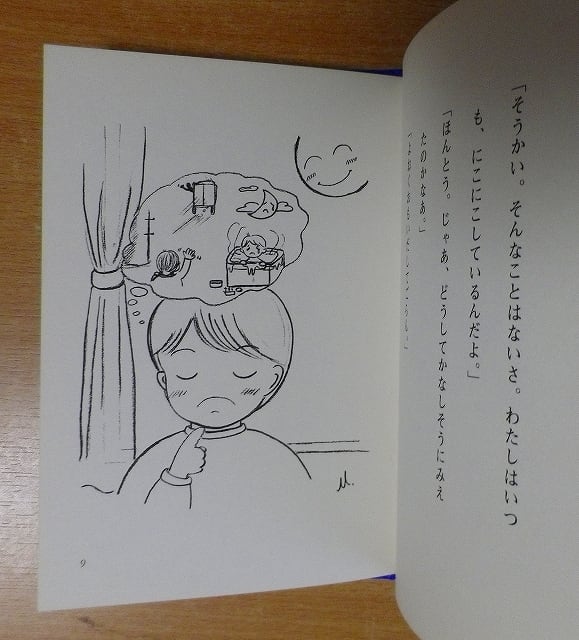 「そうかい。そんなことはないさ。わたしはいつ
も、にこにこしているんだよ。」
「ほんとう。じゃあ、どうしてかなしそうにみえ
たのかなあ。」
9